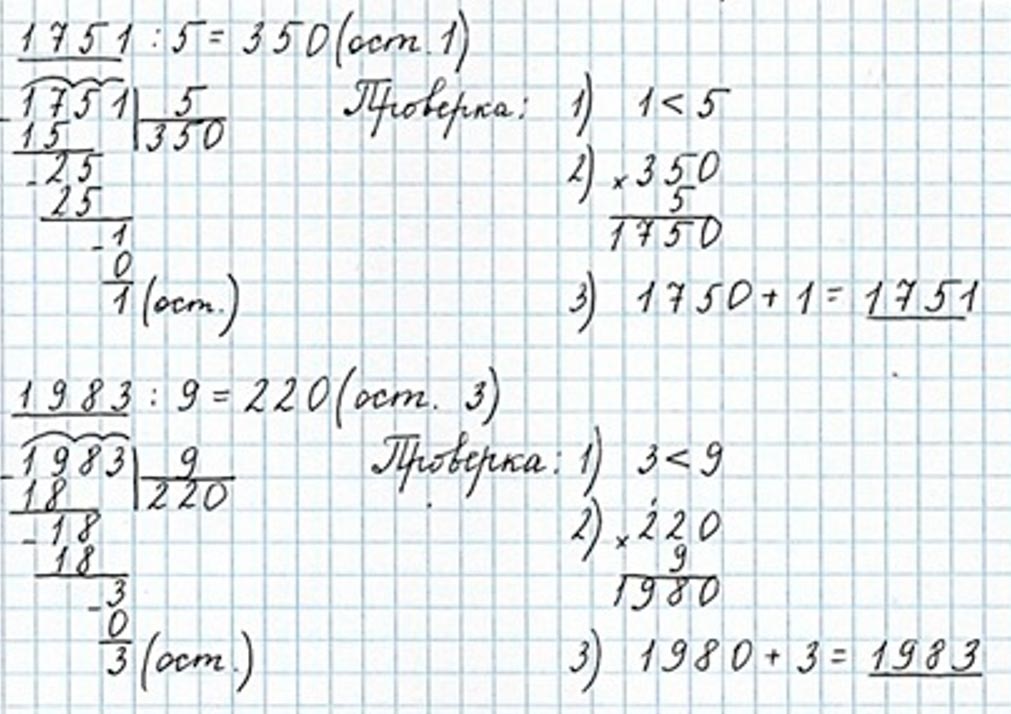 1751 : 5 = 350 (ост. 1)
1751 | 5
- 15 | 350
- 25
25
- 1
0
1 (ост.)
Проверка: 1) 1 < 5
2) × 350
5
1750
3) 1750 + 1 = 1751
1983 : 9 = 220 (ост. 3)
1983 | 9
- 18 | 220
- 18
18
- 3
0
3 (ост.)
Проверка: 1) 3 < 9
2) × 220
9
1980
3) 1980 + 3 = 1983